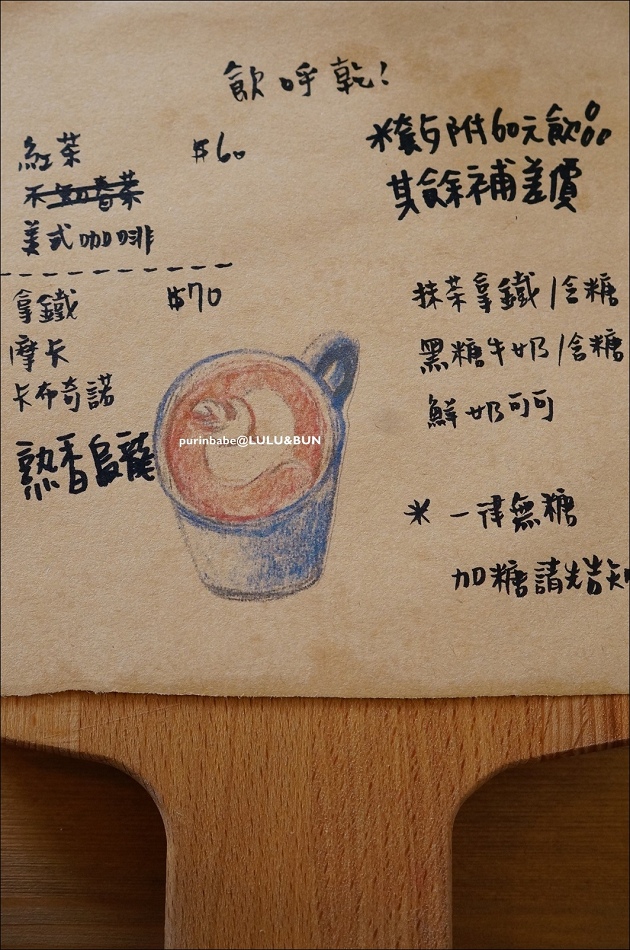 飲呼乾!
紅茶 $60
美式咖啡
拿鐵 $70
摩卡
卡布奇諾
熟香烏龍
*套ㄢ附60元飲品
其餘補差價
抹茶拿鐵/含糖
黑糖牛奶/含糖
鮮奶可可
* 一律無糖
加糖請先告知
purinbabe@LULU&BUN